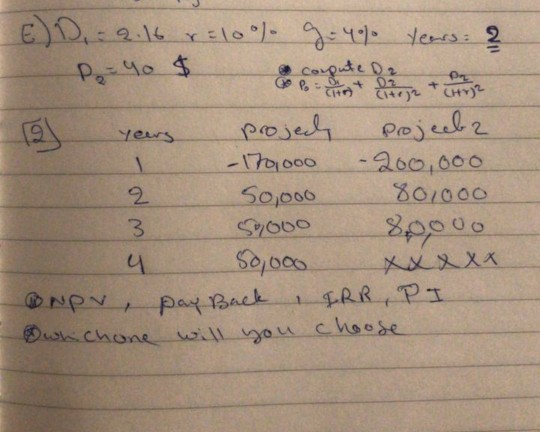 E) D₁ = 2.16 r = 10% g = 4% years = 2
P₂ = 40 $ compute D₂
P₀ = D₁/(1+r) + D₂/(1+r)² + P₂/(1+r)²
[2] years project 1 project 2
1 -170,000 -200,000
2 50,000 80,000
3 50,000 80,000
4 50,000 xxxxx
NPV, pay Back, IRR, PI
which one will you choose